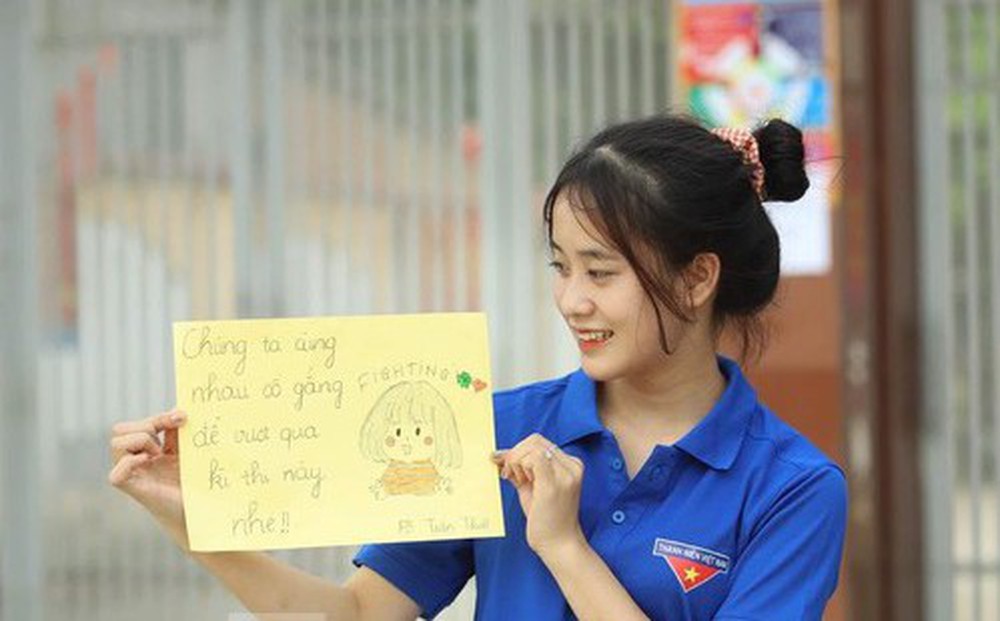 Chúng ta cùng
nhau cố gắng
để vượt qua
kì thi này
nhé!!
FIGHTING
THANH NIÊN VIỆT NAM